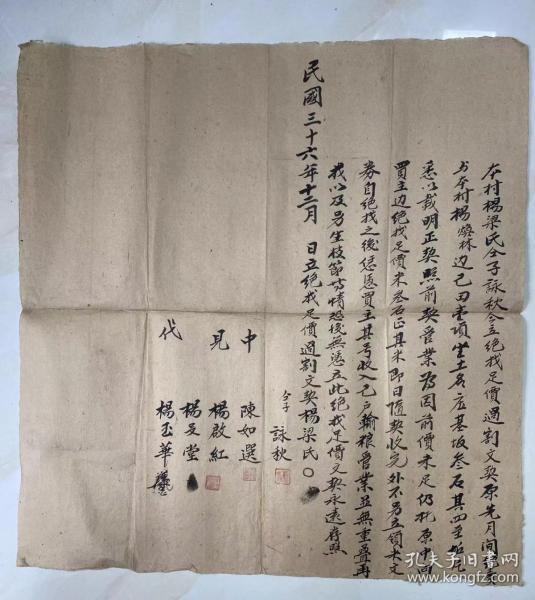 本村楊梁氏仝子詠秋今立絕找足價過割文契原先月间
与本村楊 林边己田壹項坐土名 基坂叁石其四至
悉以載明正契照前契管業 因前價未足仍托原中向
買主边絕找足價米叁石正其米即日隨契收完外不另立領米文
券自絕找之後恁憑買主其号收入己户輸粮管業並無重叠再
找以及另生枝節等情恐後無憑立此絕找足價文契永遠存照
民國三十六年十二月 日立絕找足價過割文契楊梁氏〇
仝子 詠秋
中 陳如選
見 楊啟紅
楊 堂
代 楊玉華
孔夫子旧书网
www.kongfz.com